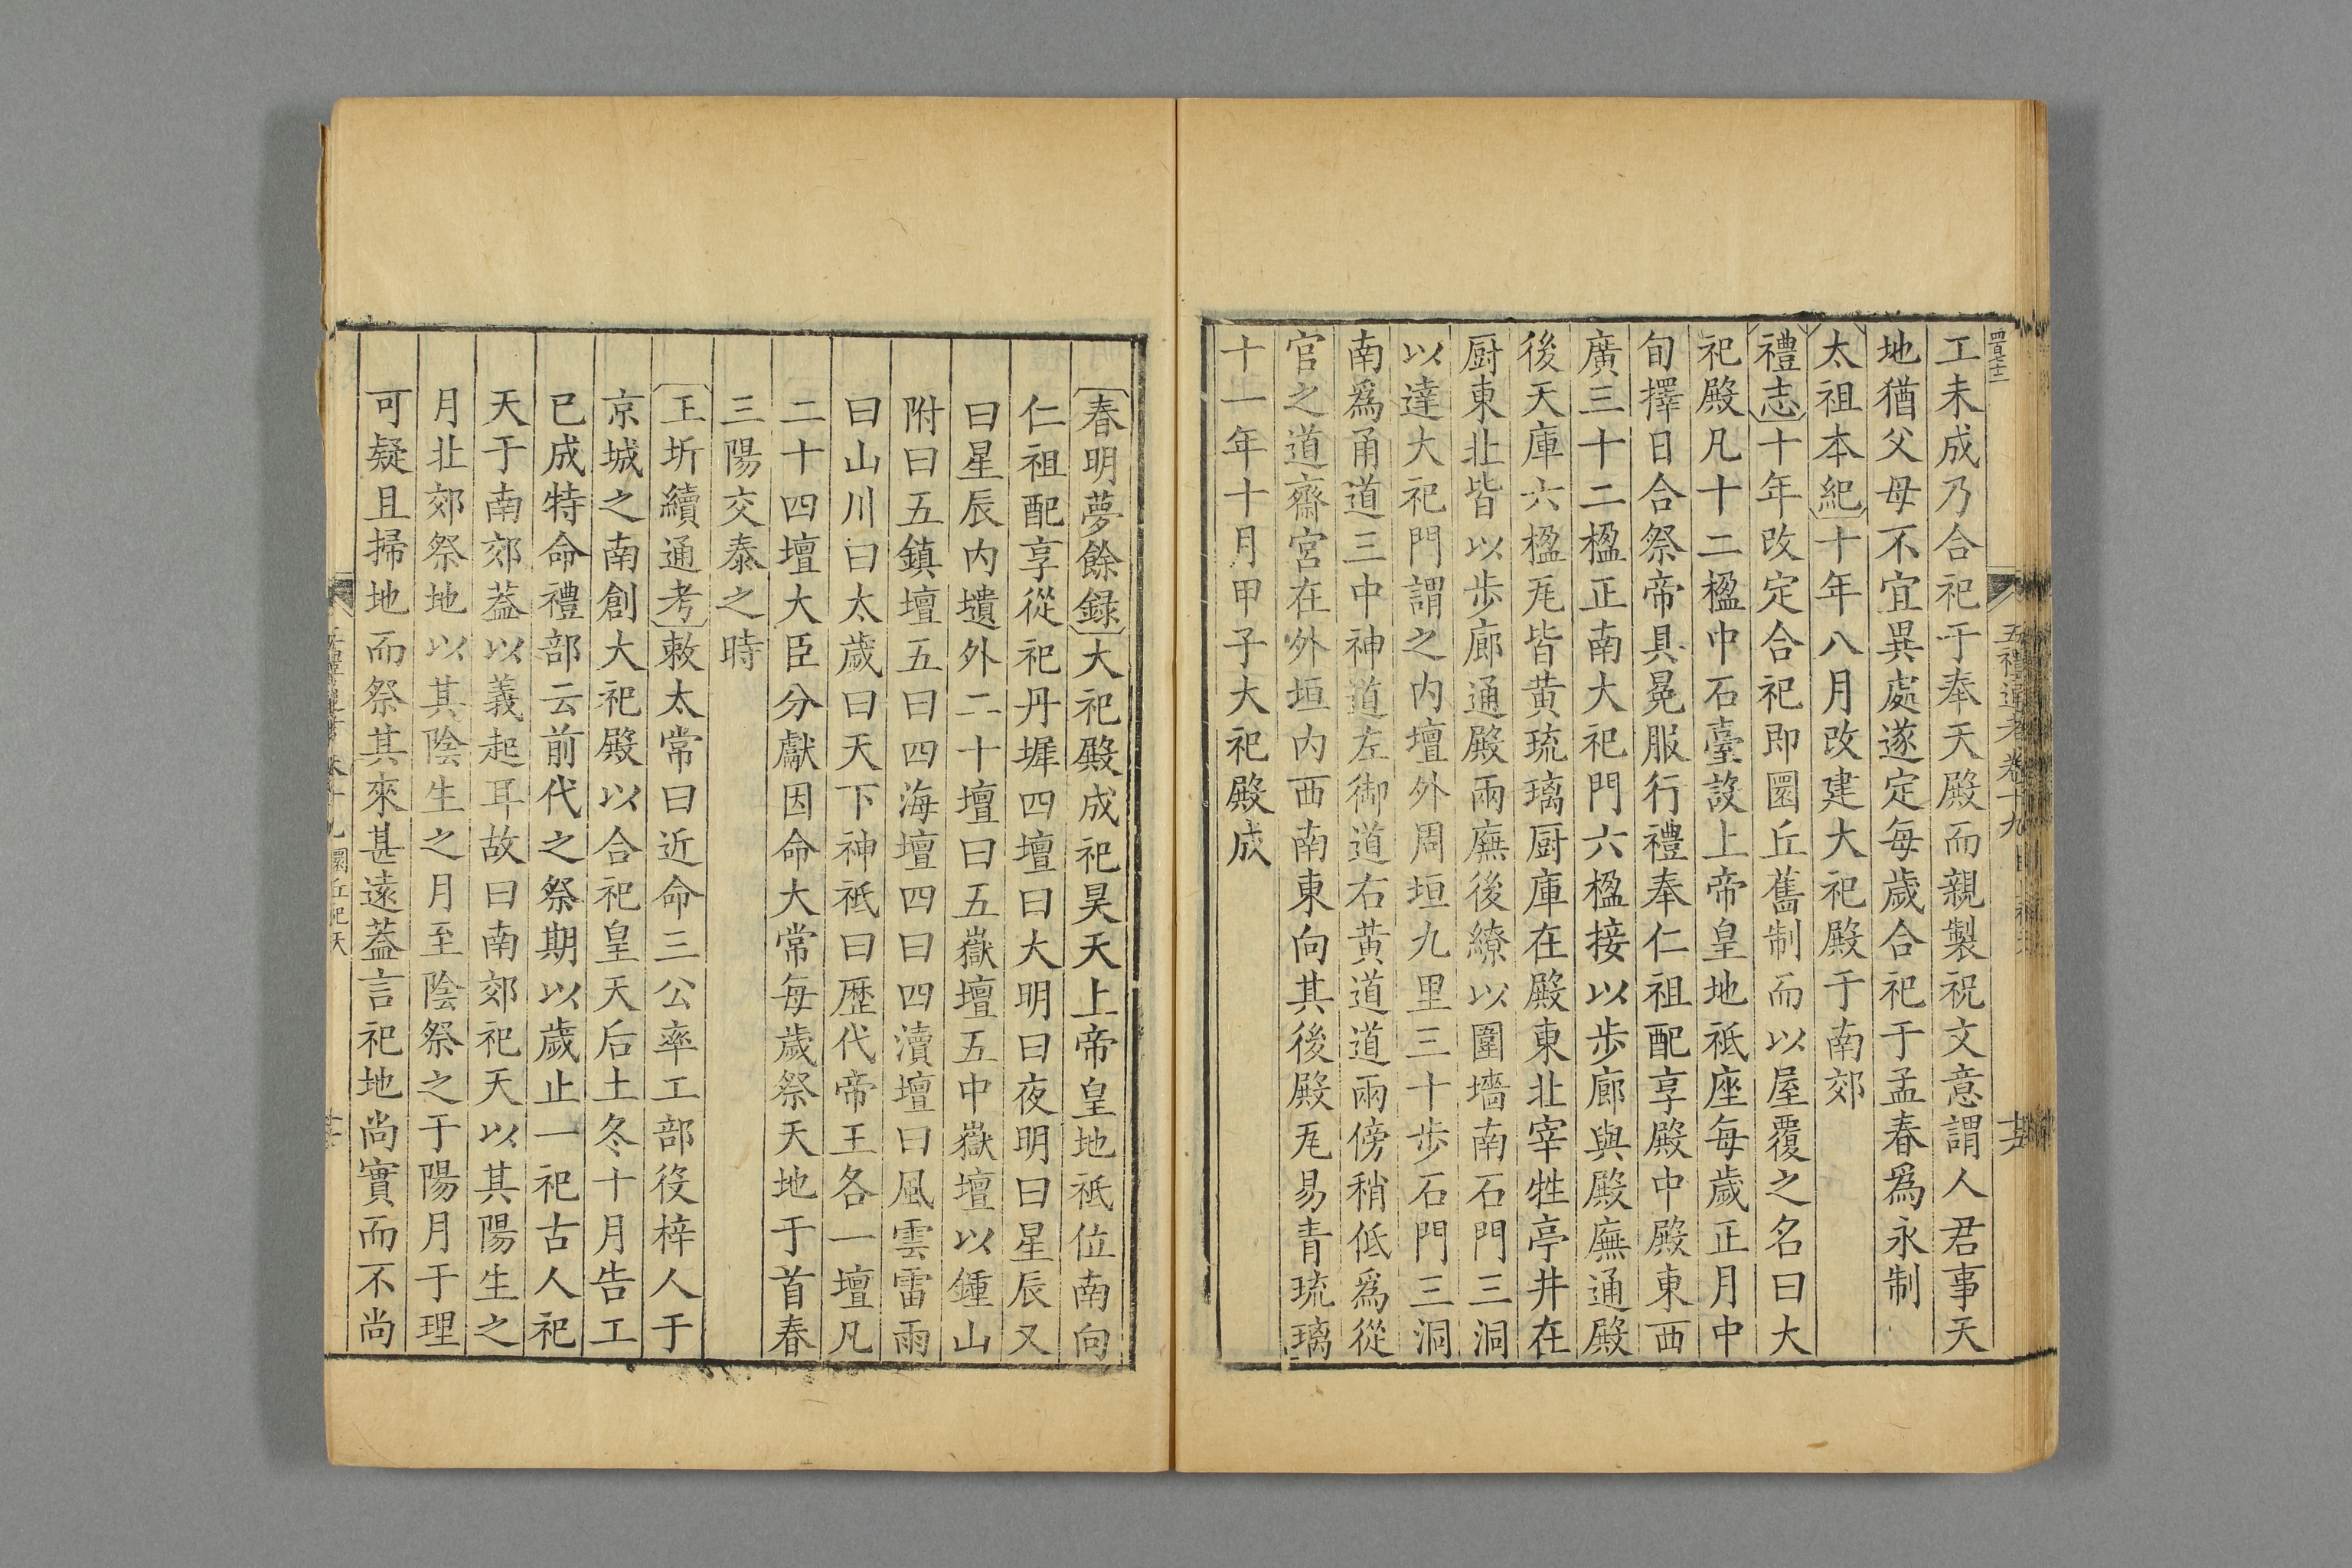 四百十二
五禮通考卷十九
工未成乃合祀于奉天殿而親製祝文意謂人君事天
地猶父母不宜異處遂定每歲合祀于孟春爲永制
太祖本紀十年八月改建大祀殿于南郊
禮志十年改定合祀即圜丘舊制而以屋覆之名曰大
祀殿凡十二楹中石臺設上帝皇地祇座每歲正月中
旬擇日合祭帝具冕服行禮奉仁祖配享殿中殿東西
廣三十二楹正南大祀門六楹接以步廊與殿廡通殿
後天庫六楹瓦皆黄琉璃厨庫在殿東北宰牲亭井在
厨東北皆以步廊通殿兩廡後繚以圍墻南石門三洞
以達大祀門謂之内壇外周垣九里三十步石門三洞
南爲甬道三中神道左御道右黄道道兩傍稍低爲從
官之道齋宮在外垣内西南東向其後殿瓦易青琉璃
十一年十月甲子大祀殿成
春明夢餘録大祀殿成祀昊天上帝皇地祇位南向
仁祖配享從祀丹墀四壇曰大明曰夜明曰星辰又
曰星辰内壝外二十壇曰五嶽壇五中嶽壇以鍾山
附曰五鎮壇五曰四海壇四曰四瀆壇曰風雲雷雨
曰山川曰太歲曰天下神祇曰歴代帝王各一壇凡
二十四壇大臣分獻因命大常每歲祭天地于首春
三陽交泰之時
王圻續通考敕太常曰近命三公率工部役梓人于
京城之南創大祀殿以合祀皇天后土冬十月告工
已成特命禮部云前代之祭期以歲止一祀古人祀
天于南郊葢以義起耳故曰南郊祀天以其陽生之
月北郊祭地以其陰生之月至陰祭之于陽月于理
可疑且掃地而祭其來甚遠葢言祀地尚實而不尚
圜丘祀天